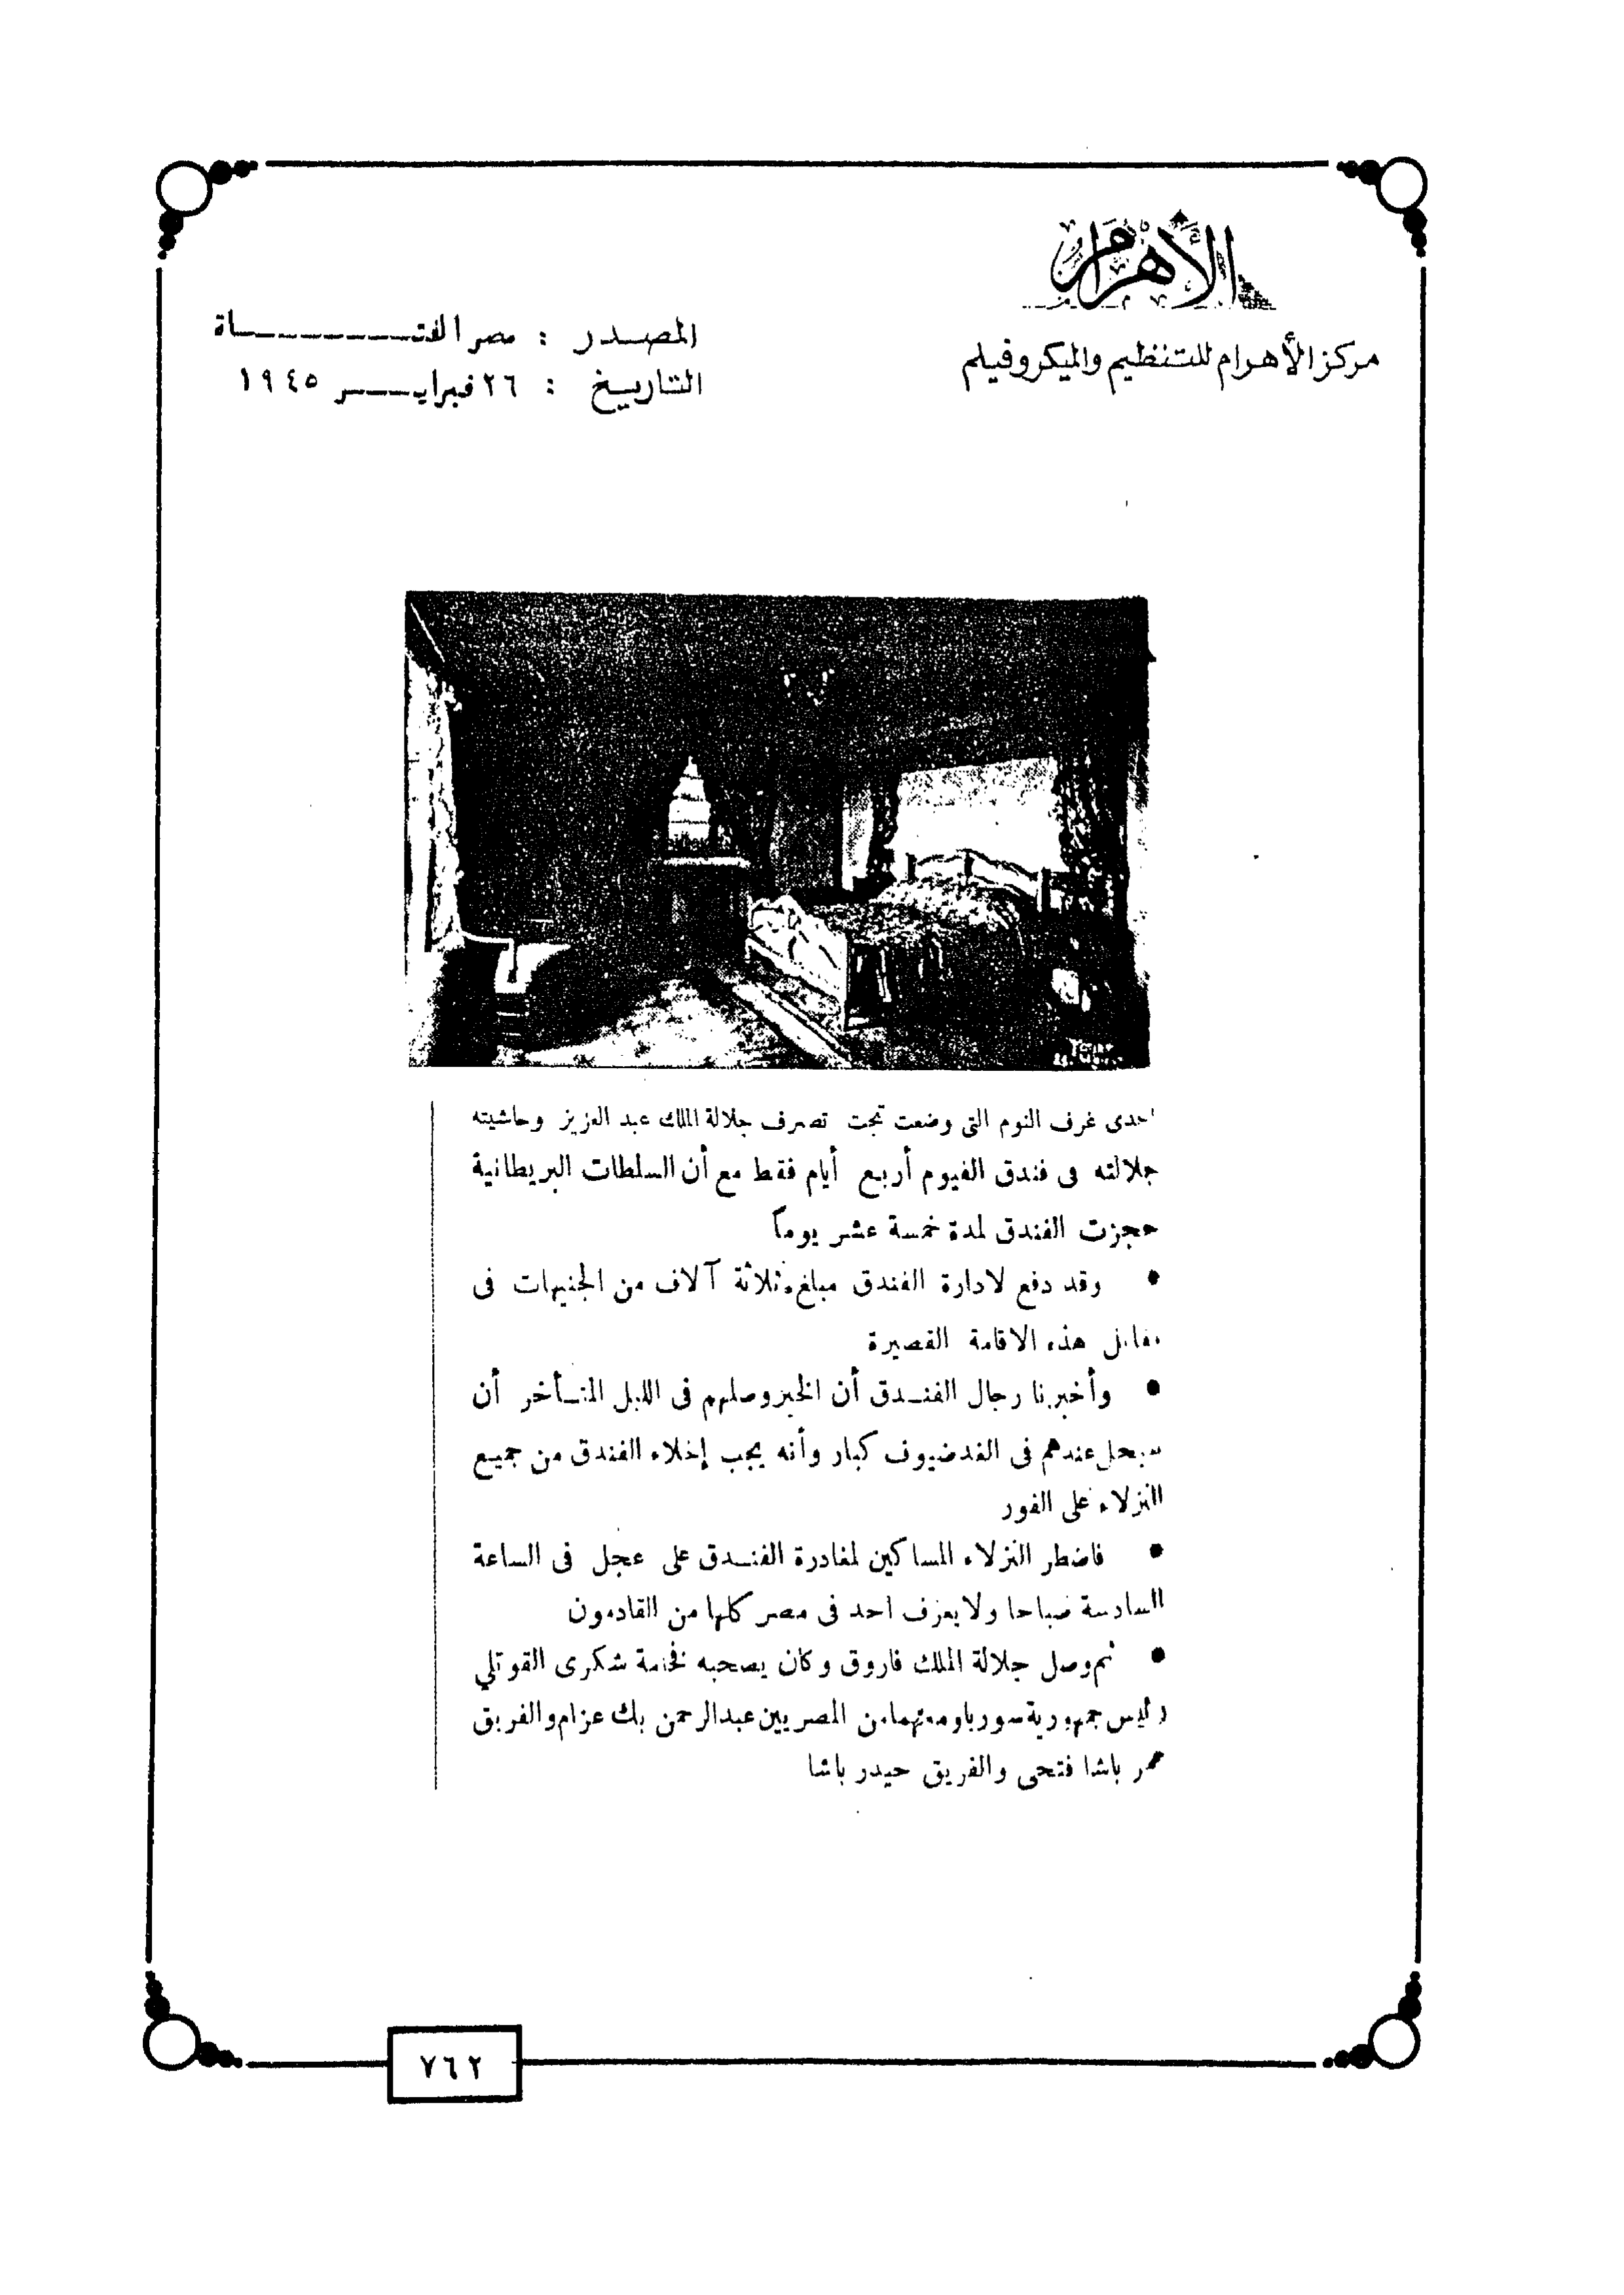 الأهرام
مركز الأهرام للتنظيم والميكروفيلم
المصدر : مصر الفتاة
التاريخ : ٢٦ فبراير ١٩٤٥
احدى غرف النوم التى وضعت تحت تصرف جلالة الملك عبد العزيز وحاشيته
جلالته فى فندق الفيوم أربع أيام فقط مع أن السلطات البريطانية
حجزت الفندق لمدة خمسة عشر يوماً
• وقد دفع لادارة الفندق مبلغ ثلاثة آلاف من الجنيهات فى
مقابل هذه الاقامة القصيرة
• وأخبرنا رجال الفندق أن الخبر وصلهم فى الليل المتأخر أن
سيحل عندهم فى الغد ضيوف كبار وأنه يجب إخلاء الفندق من جميع
النزلاء على الفور
• فاضطر النزلاء المساكين لمغادرة الفندق على عجل فى الساعة
السادسة صباحا ولا يعرف احد فى مصر كلها من القادمون
• ثم وصل جلالة الملك فاروق وكان يصحبه فخامة شكرى القوتلي
رئيس جمهورية سوريا ومعهما من المصريين عبد الرحمن بك عزام والفريق
عمر باشا فتحى والفريق حيدر باشا
٧٦٢